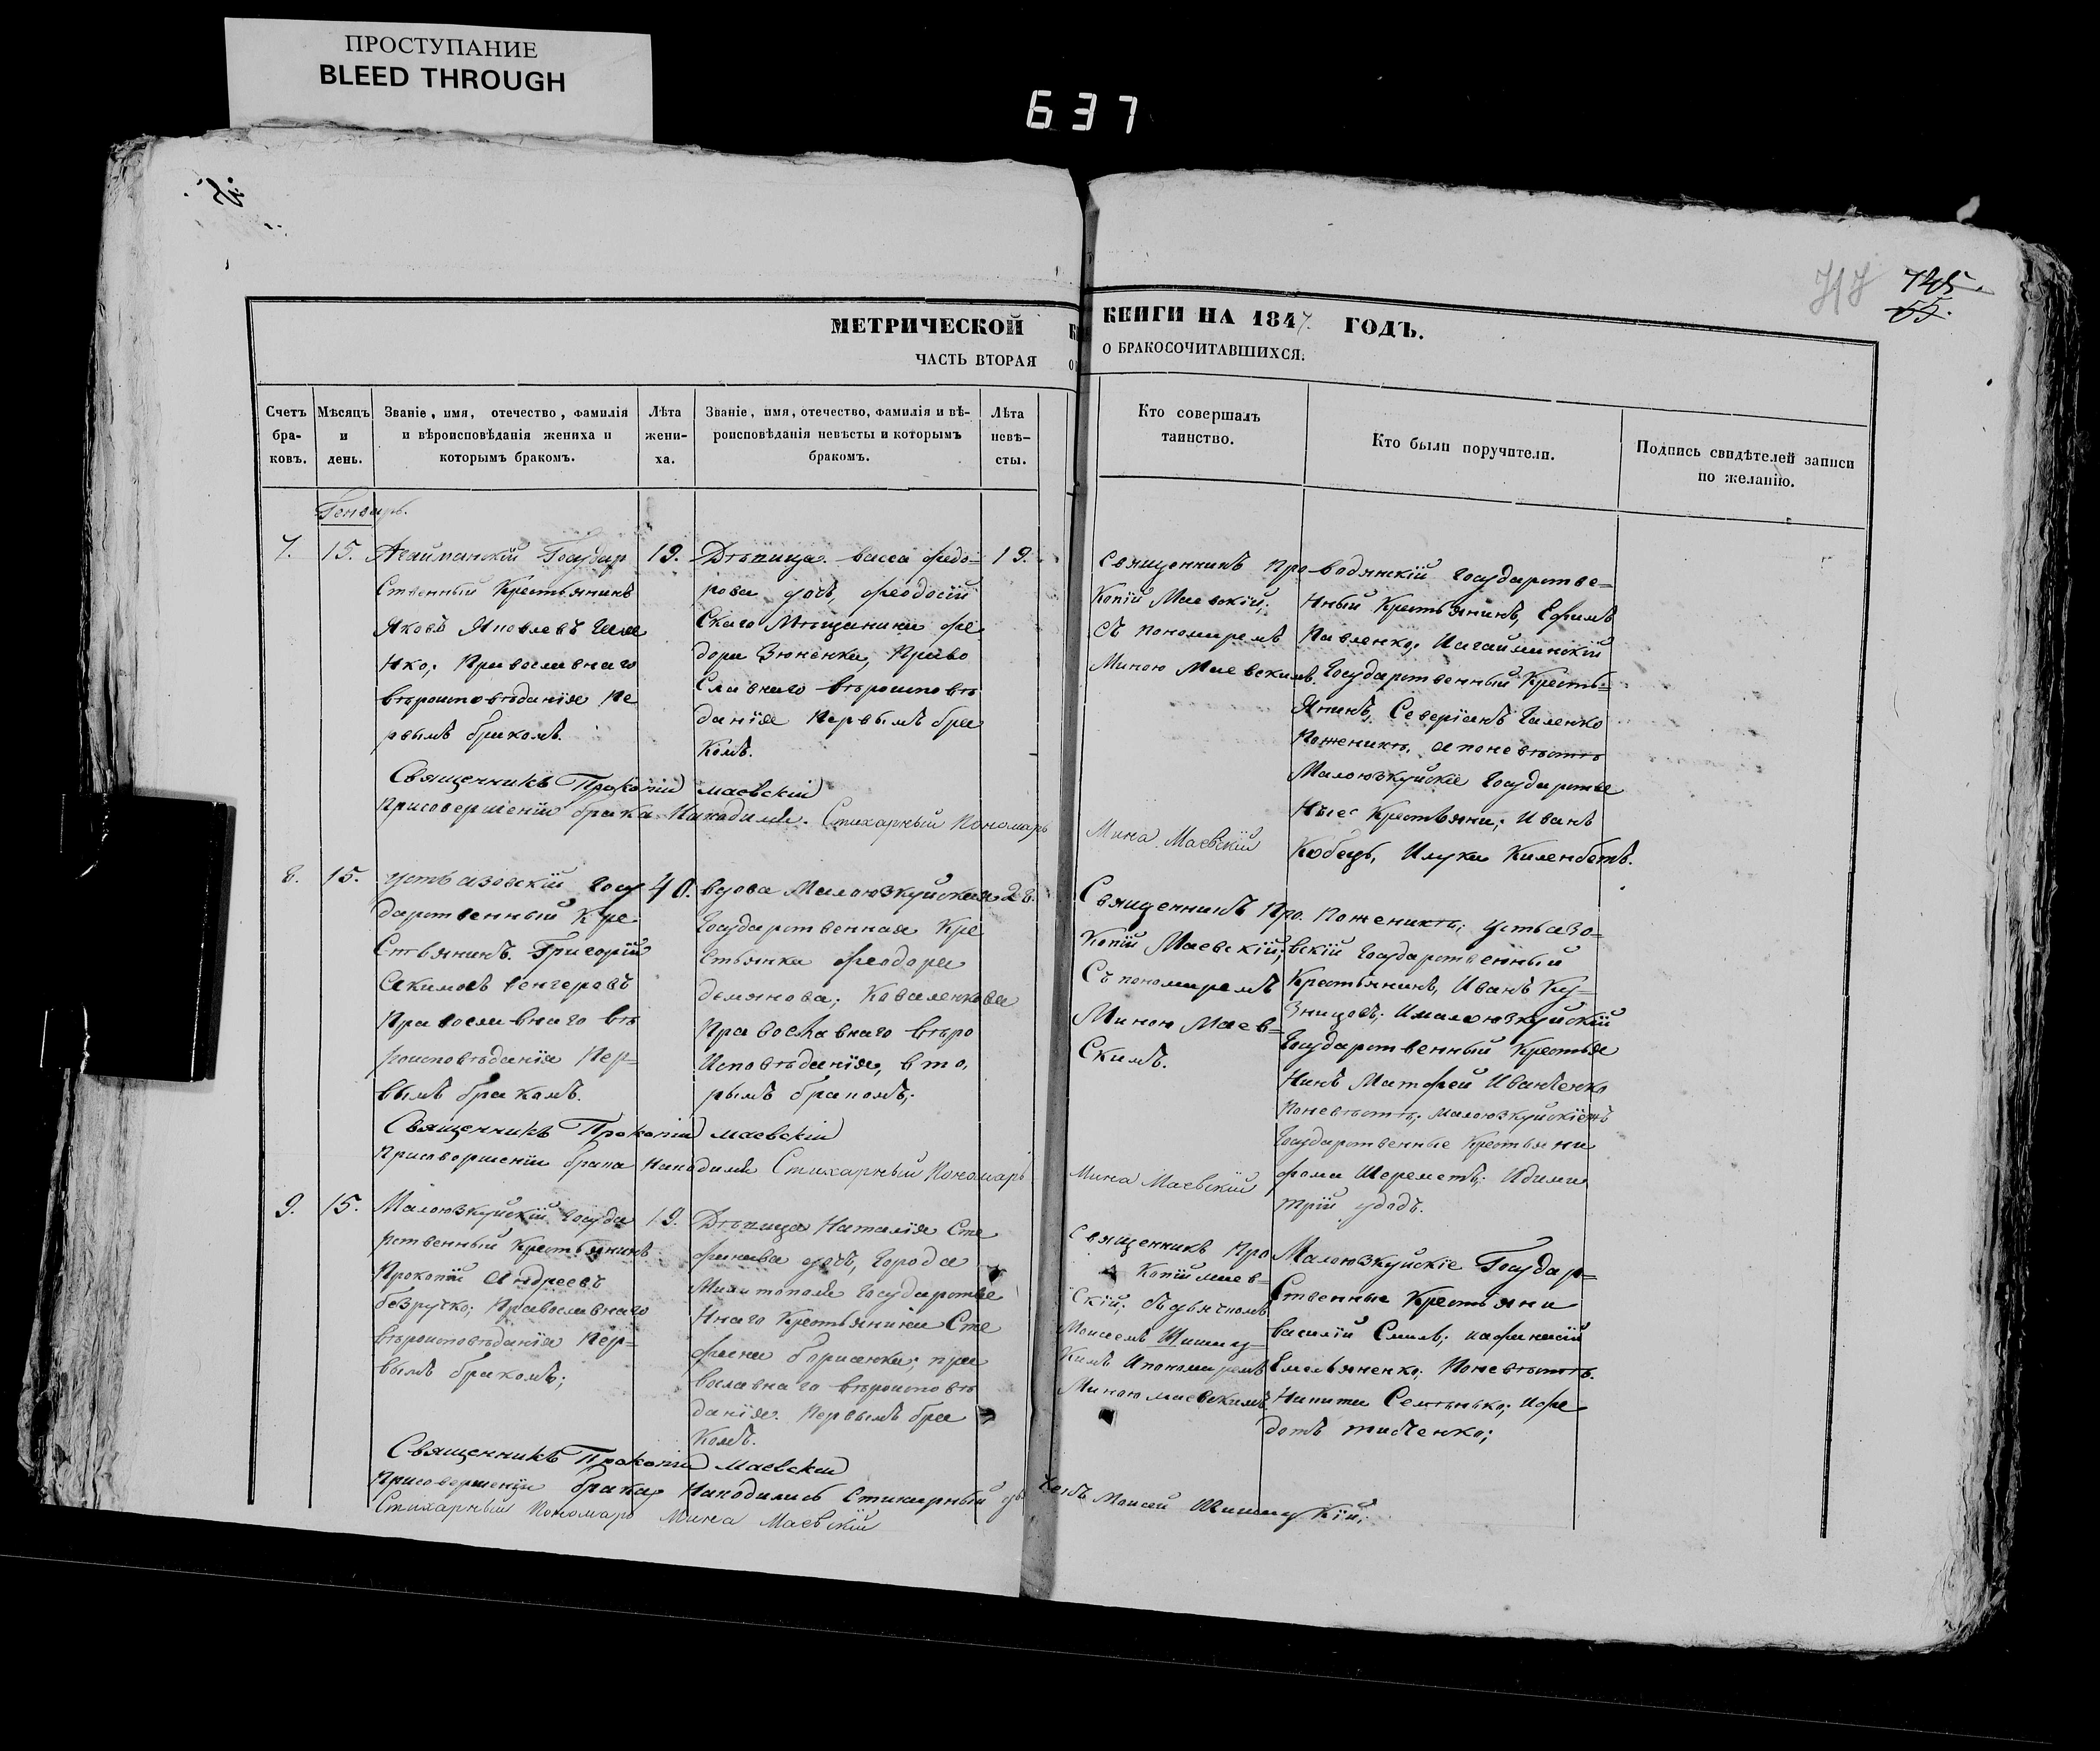 ПРОСТУПАНИЕ
BLEED THROUGH
637
717 745.
55.
МЕТРИЧЕСКОЙ
ЧАСТЬ ВТОРАЯ
КНИГИ НА 1847. ГОДЪ.
О БРАКОСОЧИТАВШИХСЯ.
Счетъ
бра-
ковъ.
Мѣсяцъ
и
день.
Званіе, имя, отечество, фамилія
и вѣроисповѣданія жениха и
которымъ бракомъ.
Лѣта
жени-
ха.
Званіе, имя, отечество, фамилія и вѣ-
роисповѣданія невѣсты и которымъ
бракомъ.
Лѣта
невѣ-
сты.
Кто совершалъ
таинство.
Кто были поручители.
Подпись свидѣтелей записи
по желанію.
Генварь.
7.
15.
Агайманскій Государ
ственный Крестьянинъ
Яковъ Яковлевъ
нко; Православнаго
вѣроисповѣданія Пе
рвымъ бракомъ.
19.
Дѣвица васса федо=
рова дочь, феодосій
скаго Мѣщанина фе
дора Зюненка, Право
славнаго вѣроисповѣ
данія первымъ бра
комъ.
19.
Священникъ Про
копій Маевскій;
съ пономаремъ
Миною Маевскимъ.
водянскій государстве=
нный Крестьянинъ, Ефимъ
Павленко, Иагайманскій
Государственный Кресть=
янинъ, Северіанъ Галенко
Поженихѣ, апоневѣстѣ
Малоюзкуйскіе Государстве
ные Крестьяни; Иванъ
Кобецъ, Илука
Священникъ Прокопій маевскій
Присовершеніи брака находился. Стихарный Пономарь
Мина Маевскій
8.
15.
Устьазовскій Госу
дарственный Кре
стьянинъ. Григорій
Акимовъ венгеровъ
Православнаго вѣ
роисповѣданія Пер=
вымъ бракомъ.
40.
вдова Малоюзкуйская
Государственная Кре
стьянка феодора
демянова; Коваленкова
Православнаго вѣро
исповѣданія, вто,
рымъ бракомъ;
28.
Священникъ Про
копій Маевскій;
Съ пономаремъ
Миною Маев=
скимъ.
Поженихѣ; Устьазо=
вскій Государственный
Крестьянинъ, Иванъ Ку=
знецовъ; Ималоюзкуйскій
Государственный Крестья
нинъ Матфей Иванченко
Поневѣстѣ; малоюзкуйскіежъ
Государственные Крестьяни
фома Шереметъ; Идими
трій удодъ.
Священникъ Прокопій маевскій
Присовершеніи брака находился Стихарный Пономарь
Мина Маевскій
9.
15.
Малоюзкуйскій Госуда
рственный Крестьянинъ
Прокопій Андреевъ
безручко; Православнаго
вѣроисповѣданія Пер=
вымъ бракомъ;
19.
Дѣвица Наталія Сте
фанова дочь, Города
Милитополя Государстве
ннаго Крестьянина Сте
фана борисенка; пра
вославнаго вѣроисповѣ
данія. Первымъ бра
комъ.
Священникъ Про
копій маев=
скій; съдьячкомъ
Моисеемъ Шишац=
кимъ Ипономаремъ
Миною маевскимъ
Малоюзкуйскіе Государ=
ственные Крестьяни
василій Смилъ; иафанасій
Емельяненко; Поневѣстѣ.
Никита Семѣнько; Ифе
дотъ
Священникъ Прокопій Маевскій
Присовершеніи брака находились Стихарный дья
чекъ Моисей Шишацкій;
Стихарный Пономарь Мина Маевскій